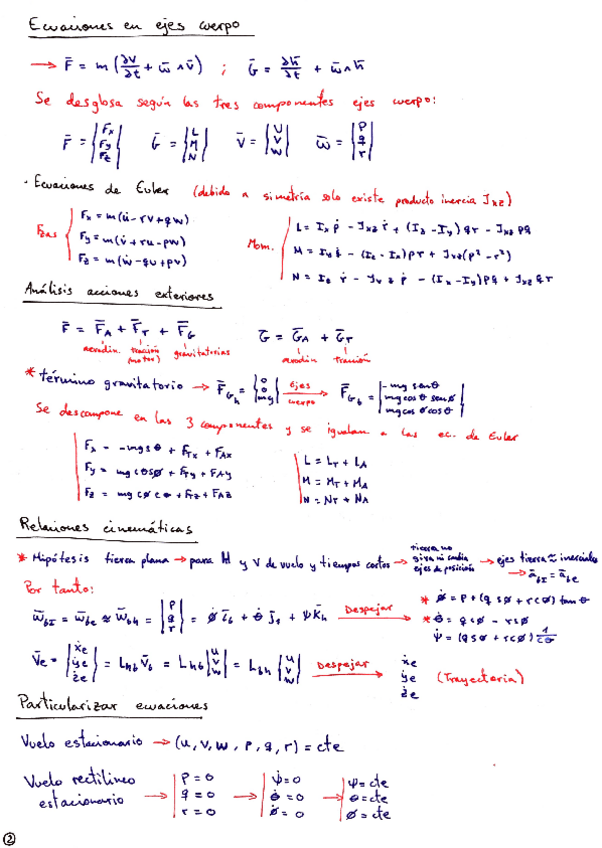 Ecuaciones en ejes cuerpo
→ F̄ = m (∂V/∂t + ω̄ ∧ v̄) ; Ḡ = ∂h̄/∂t + ω̄ ∧ h̄
Se desglosa según las tres componentes ejes cuerpo:
F̄ = {Fx Fy Fz} Ḡ = {L M N} V̄ = {U V W} ω̄ = {p q r}
· Ecuaciones de Euler (debido a simetría solo existe producto inercia Jxz)
Fzas
Fx = m(u̇ - rv + qw)
Fy = m(v̇ + ru - pw)
Fz = m(ẇ - qu + pv)
Mom.
L = Ix ṗ - Jxz ṙ + (Iz - Iy) qr - Jxz pq
M = Iy q̇ - (Iz - Ix) pr + Jxz (p² - r²)
N = Iz ṙ - Jxz ṗ - (Ix - Iy) pq + Jxz qr
Análisis acciones exteriores
F̄ = F̄A + F̄T + F̄G Ḡ = ḠA + ḠT
aerodin. tracción (motor) gravitatorias aerodin tracción
* término gravitatorio → F̄Gh = {0 0 mg} ejes cuerpo → F̄Gb = |-mg senθ mg cosθ senø mg cosθ cosø|
Se descompone en las 3 componentes y se igualan a las ec. de Euler
Fx = -mg sθ + FTx + FAx
Fy = mg cθ sø + FTy + FAy
Fz = mg cø cθ + FTz + FAz
L = LT + LA
M = MT + MA
N = NT + NA
Relaciones cinemáticas
* Hipótesis tierra plana → para M y V de vuelo y tiempos cortos → tierra no gira ni cambia ejes de posición → ejes tierra ≈ inerciales
→ ābI = ābe
Por tanto:
ω̄bI = ω̄be ≈ ω̄bh = {p q r} = ø̇ ī b + θ̇ j̄1 + ψ̇ k̄h Despejar →
* ø̇ = p + (q sø + r cø) tanθ
* θ̇ = q cø - r sø
ψ̇ = (q sø + r cø) 1/cθ
V̄e = {ẋe ẏe że} = Lhb V̄b = Lhb {u v w} = Lbh {u v w} Despejar → ẋe ẏe że (Trayectoria)
Particularizar ecuaciones
Vuelo estacionario → (u, v, w, p, q, r) = cte
Vuelo rectilíneo estacionario → p = 0 q = 0 r = 0 → ψ̇ = 0 θ̇ = 0 ø̇ = 0 → ψ = cte θ = cte ø = cte
2